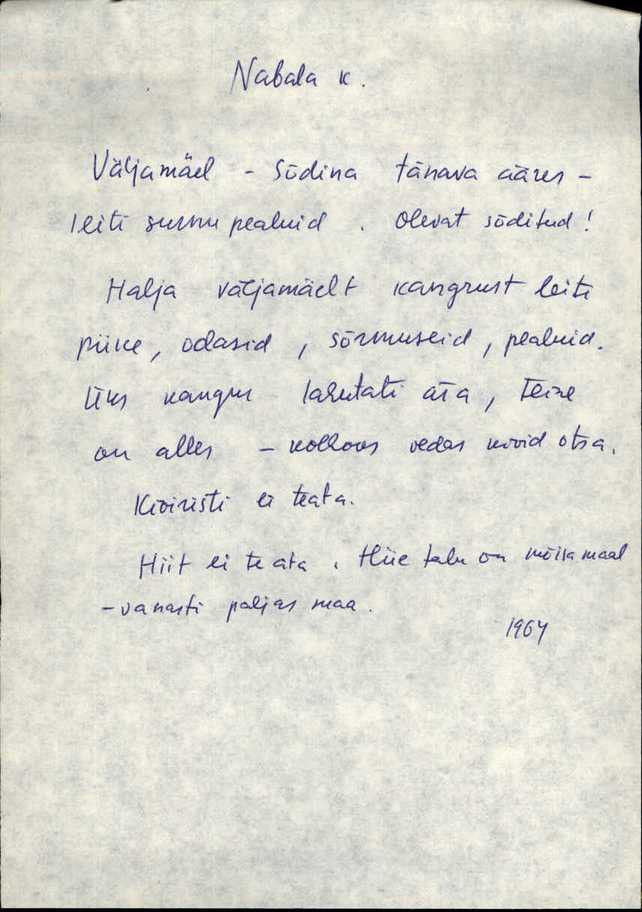 Nabala k.
Väljamäel - Sõdina tänava ääres -
leiti surnu pealuid. Olevat sõditud!
Halja väljamäelt kangrust leiti
piike, odasid, sõrmuseid, pealuid.
Üks kangur lahutati ära, teine
on alles - kolhoos vedas kivid otsa.
Kiviristi ei teata.
Hiit ei teata. Hiie talu on mõisa maal
- vanasti paljas maa.
1964